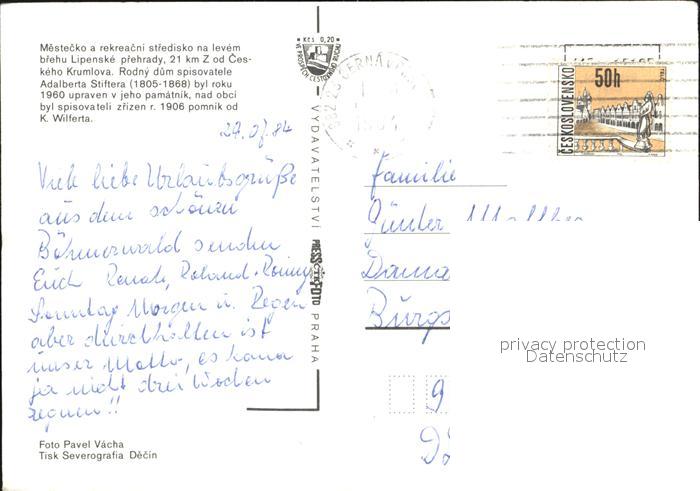 Městečko a rekreační středisko na levém
břehu Lipenské přehrady, 21 km Z od Čes-
kého Krumlova. Rodný dům spisovatele
Adalberta Stiftera (1805-1868) byl roku
1960 upraven v jeho památník, nad obcí
byl spisovateli zřízen r. 1906 pomník od
K. Wilferta.
Kčs 0,20
ČESKOSLOVENSKO
50h
Viele liebe Urlaubsgrüße
aus dem schönen
Böhmerwald senden
Erich Renate, Roland
Sonntag Morgen u. Regen
aber durchhalten ist
unser Motto, es kann
ja nicht drei Wochen
regnen!!
VYDAVATELSTVÍ PRESSFOTO PRAHA
Familie
Günter
Burgs
privacy protection
Datenschutz
9
Foto Pavel Vácha
Tisk Severografia Děčín